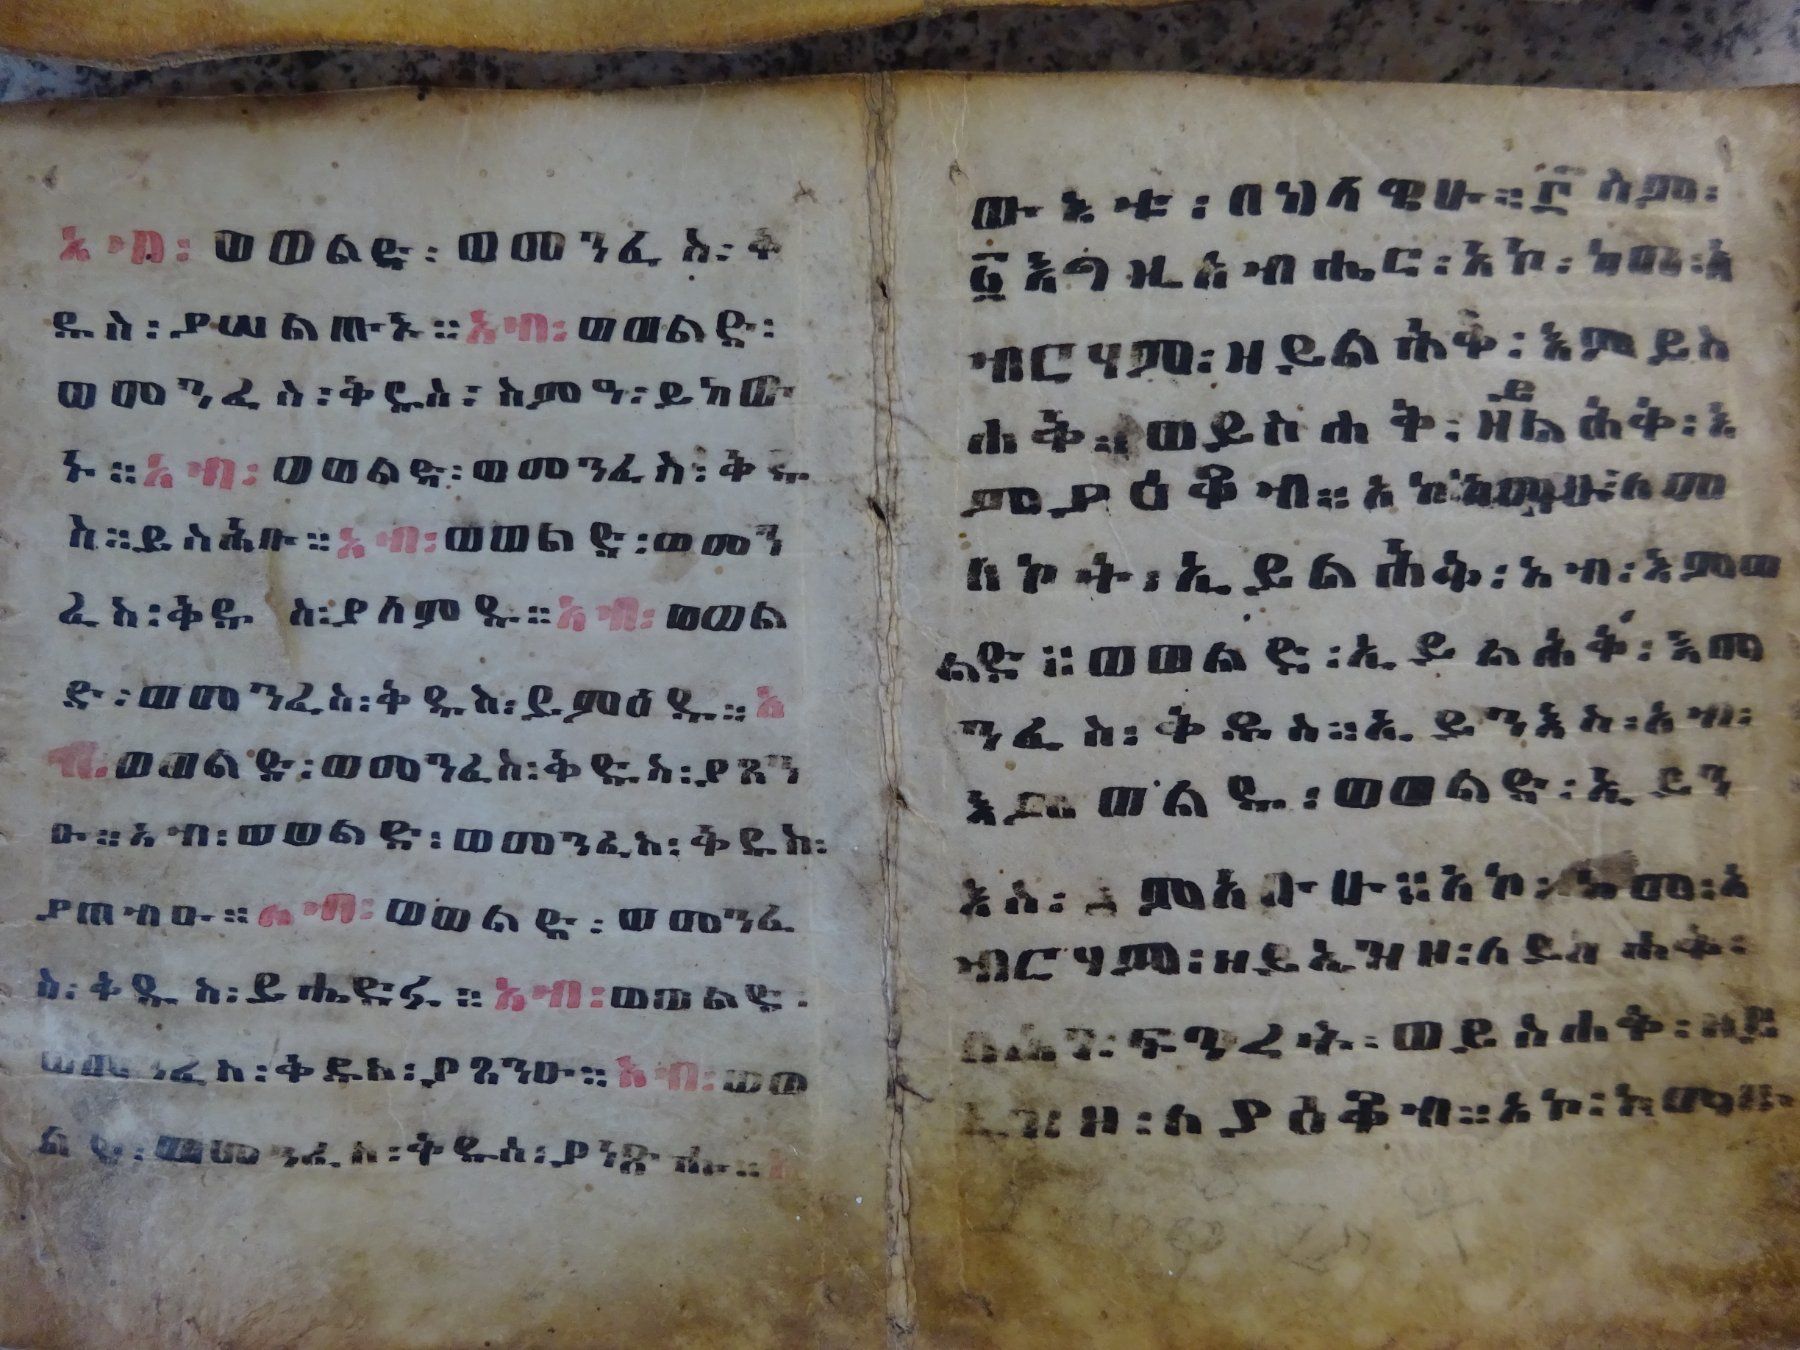 አብ፡ ወወልድ፡ ወመንፈ ስ፡ ቅ
ዱስ፡ ያሠልጡኑ። አብ፡ ወወልድ፡
ወመንፈ ስ፡ ቅዱስ፡ ስምዓ፡ ይኸው
ኑ። አብ፡ ወወልድ፡ ወመንፈስ፡ ቅዱ
ስ። ይስሕቡ። አብ፡ ወወልድ፡ ወመን
ፈስ፡ ቅዱ ስ፡ ያሰምዱ። አብ፡ ወወል
ድ፡ ወመንፈስ፡ ቅዱስ፡ ይምዕዱ። አ
ብ፡ ወወልድ፡ ወመንፈስ፡ ቅዱስ፡ ያጸን
ው። አብ፡ ወወልድ፡ ወመንፈስ፡ ቅዱስ፡
ያጠብው። አብ፡ ወወልድ፡ ወመንፈ
ስ፡ ቅዱ ስ፡ ይሔድሩ። አብ፡ ወወልድ፡
ወመንፈስ፡ ቅዱስ፡ ያጸንው። አብ፡ ወወ
ልድ፡ ወመንፈስ፡ ቅዱስ፡
ውእቱ፡ በህላዌሁ። ፫ ስም፡
፩ እግዚአብሔር፡ አኮ፡ ከመ፡ አ
ብርሃም፡ ዘይልሕቅ፡ እምይስ
ሐቅ። ወይስሐቅ፡ ዘይልሕቅ፡ እ
ምያዕቆብ። አኮ ለመ
ለኮት፡ ኢይልሕቅ፡ አብ፡ እምወ
ልድ። ወወልድ፡ ኢይልሕቅ፡ እመ
ንፈስ፡ ቅዱስ። ኢይንእስ፡ አብ፡
እም ወልዱ፡ ወወልድ፡ ኢይን
እስ፡ እምአቡሁ። አኮ፡ ከመ፡ አ
ብርሃም፡ ዘይኤዝዞ፡ ለይስሐቅ፡
በሕገ፡ ፍጥረት፡ ወይስሐቅ፡ ዘይ
ኤዝዞ፡ ለያዕቆብ። አኮ፡ ከመዝ፡